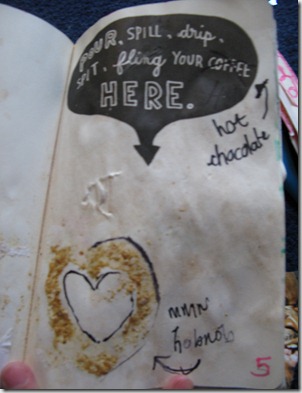 POUR, SPILL, drip,
SPIT, fling YOUR COFFEE
HERE.
hot
chocolate
mmm
hobnob
5